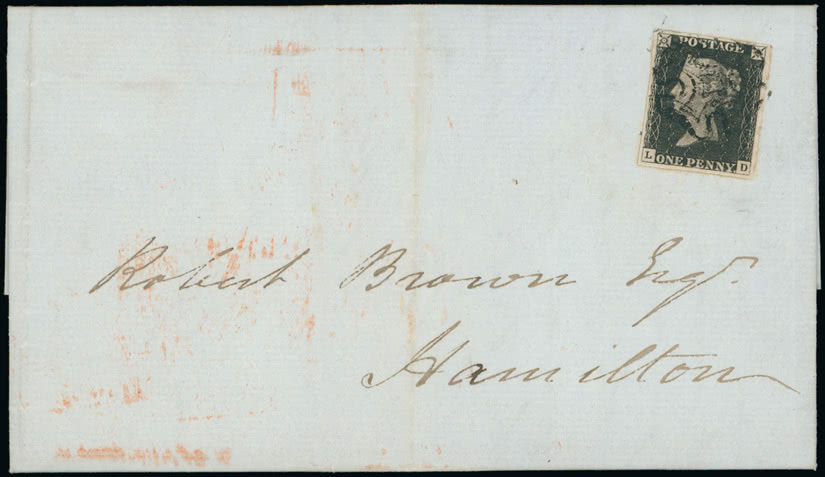 POSTAGE
L ONE PENNY D
Robert Brown Esqr.
Hamilton